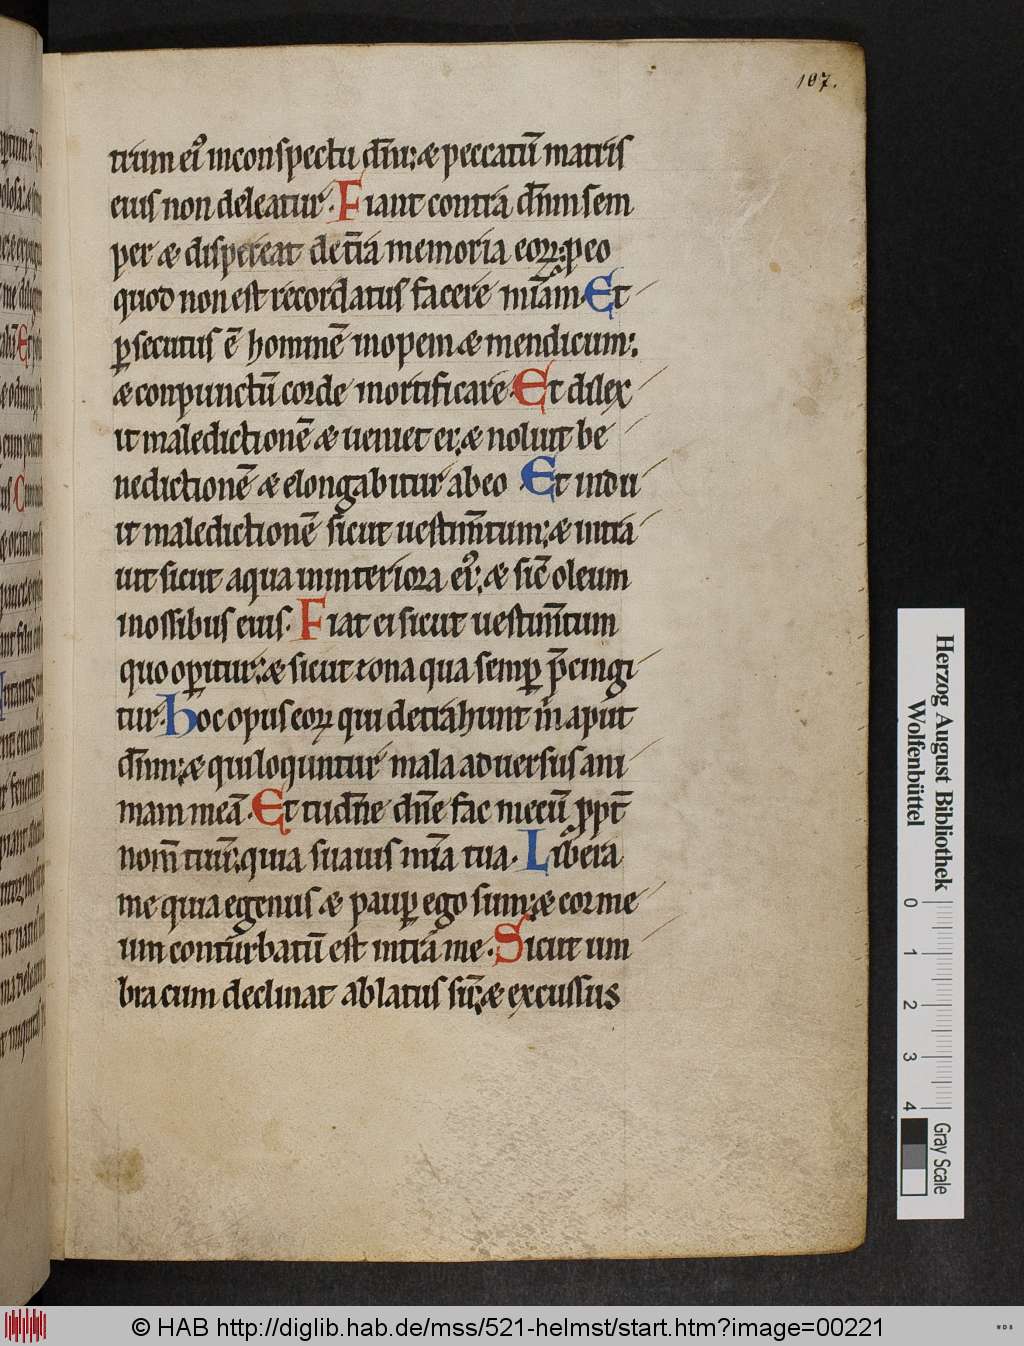 107.
trium ei᷒ in conspectu dn̄i: æ peccatū matris
eius non deleatur. Fiant contra dn̄m sem
per æ dispereat de tr̄a memoria eoꝝ: ꝑ eo
quod non est recordatus facere mīam. Et
ꝑsecutus ē hominē inopem æ mendicum:
æ conpunctū corde mortificare. Et dilex
it maledictionē æ ueniet ei: æ noluit be
nedictionē æ elongabitur ab eo. Et indu
it maledictionē sicut uestim̄tum: æ intra
uit sicut aqua in interiora ei᷒: æ sic̄ oleum
in ossibus eius. Fiat ei sicut uestim̄tum
quo oꝑitur: æ sicut zona qua semꝑ p̄cingi
tur. Hoc opus eoꝝ qui detrahunt m̄ aput
dn̄m: æ qui loquntur mala aduersus ani
mam meā. Et tu dn̄e dn̄e fac mecū ppt̄
nom̄ tuū: quia suauis mīa tua. Libera
me quia egenus æ pauꝑ ego sum: æ cor me
um conturbatū est intra me. Sicut um
bra cum declinat ablatus sū: æ excussus
Herzog August Bibliothek
Wolfenbüttel
0 1 2 3 4
Gray Scale
© HAB http://diglib.hab.de/mss/521-helmst/start.htm?image=00221